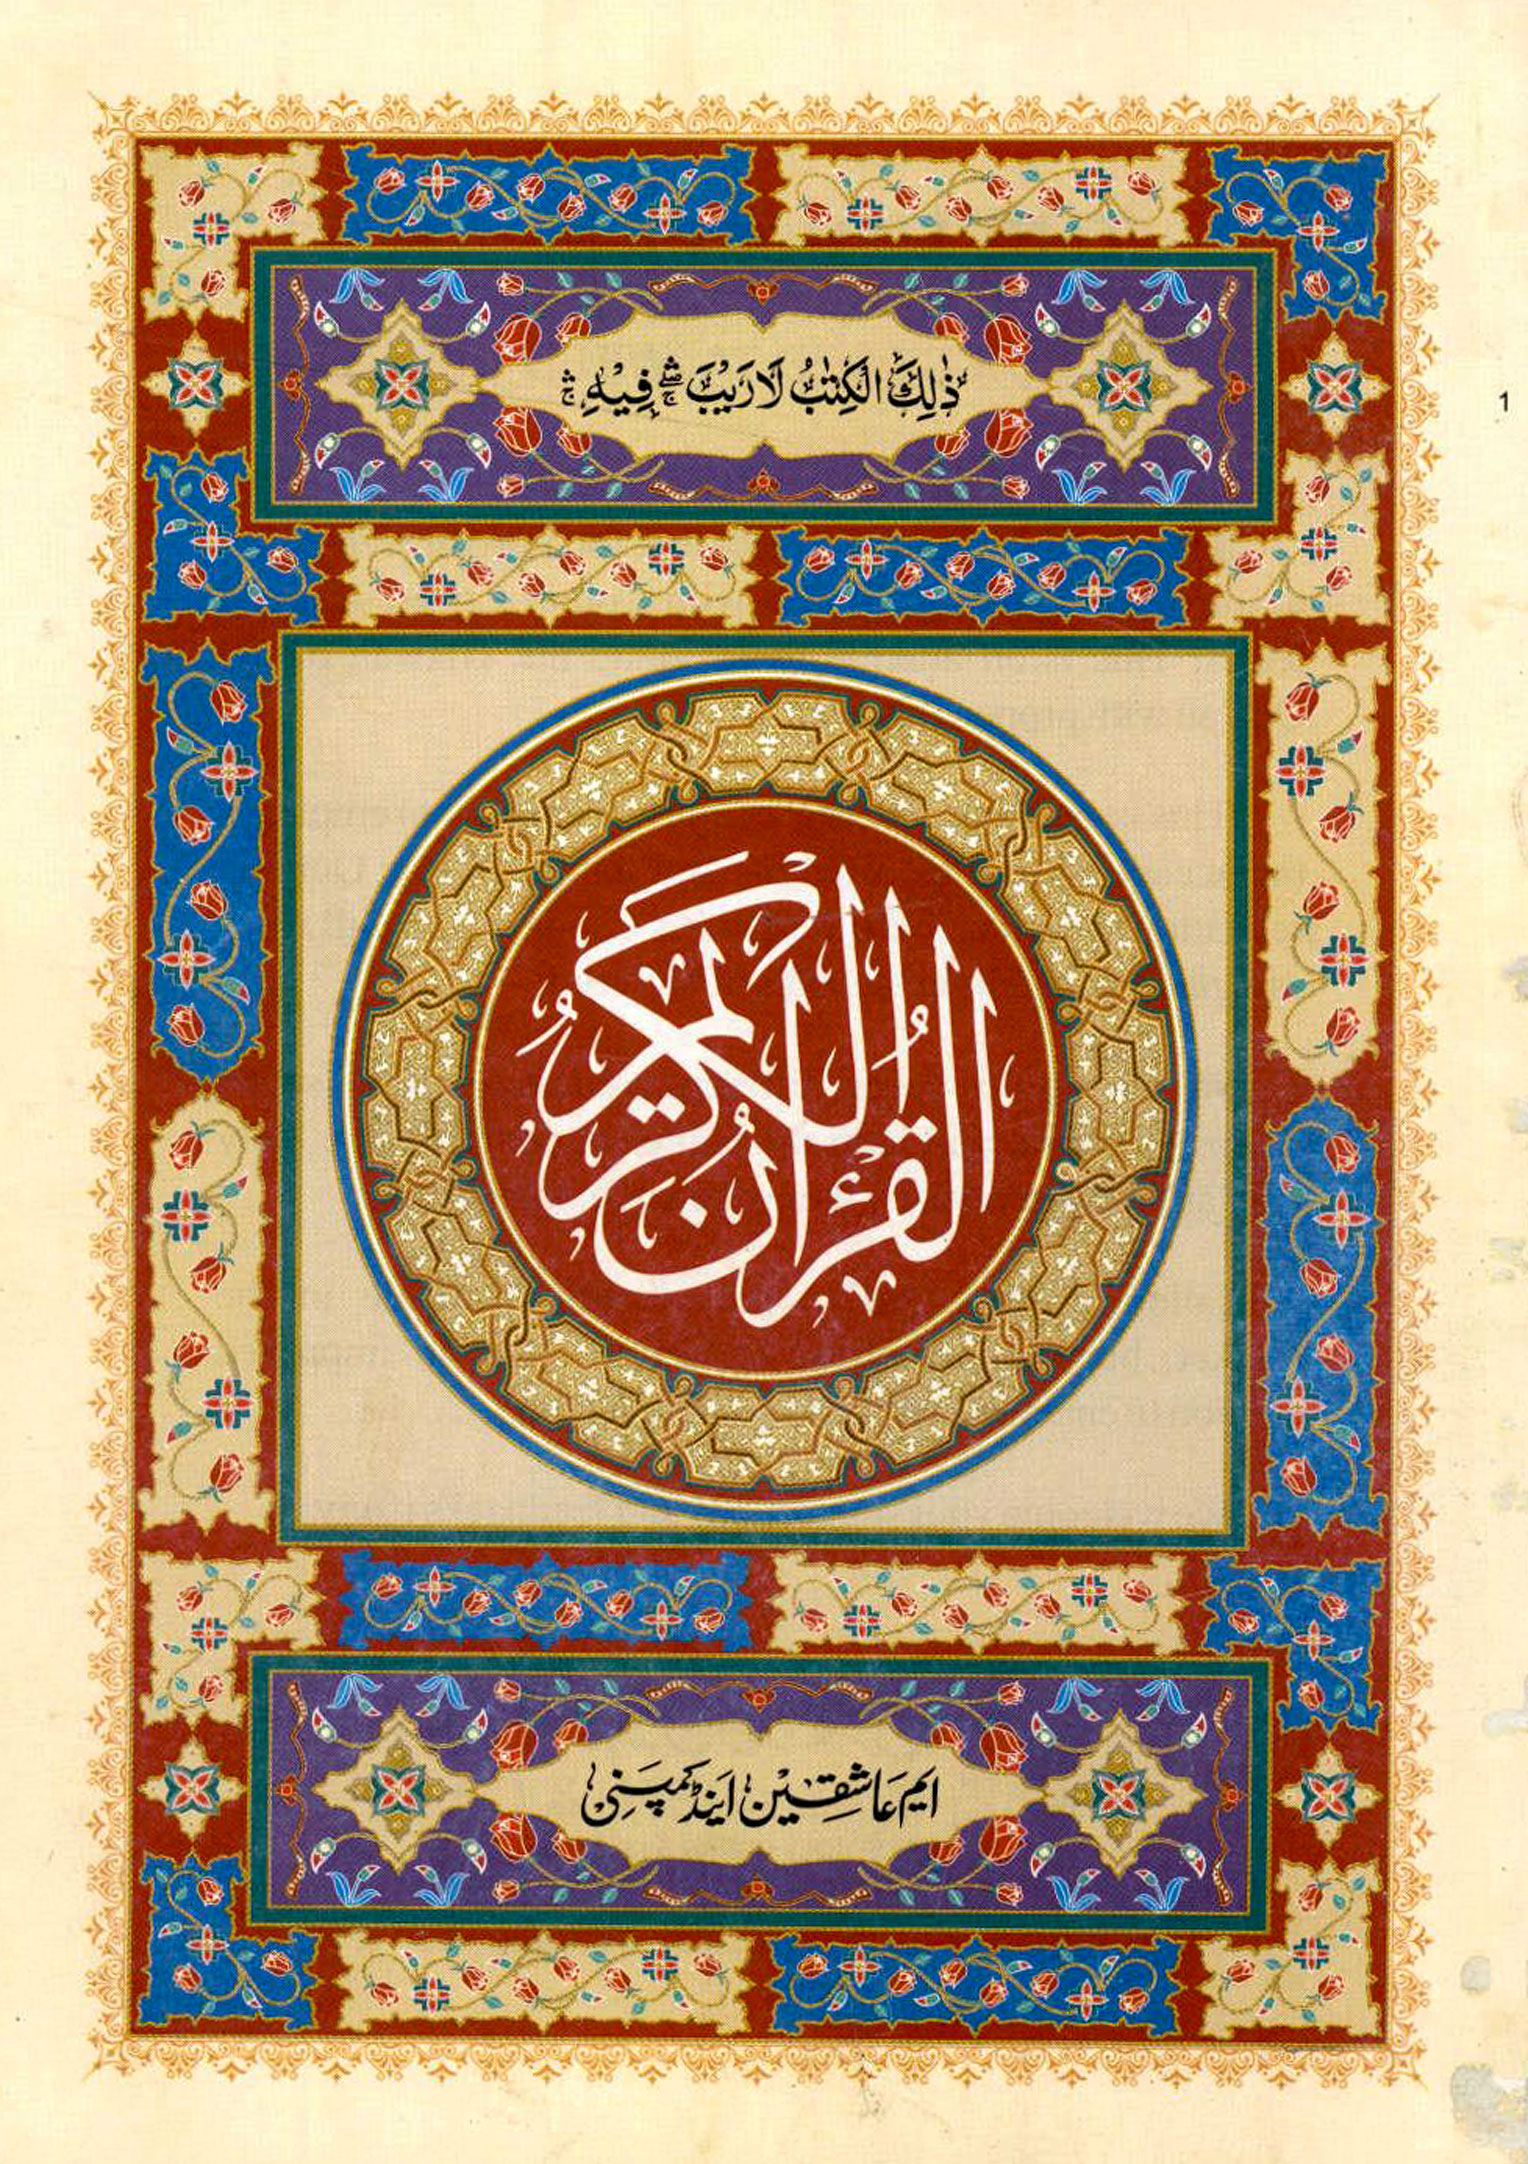 ذٰلِكَ الْكِتٰبُ لَا رَيْبَ ۛۖ فِيْهِ ۛ
1
الْقُرْآنُ الْكَرِيْمُ
ایم عَاشِقِیْن اینڈ کمپَنِی